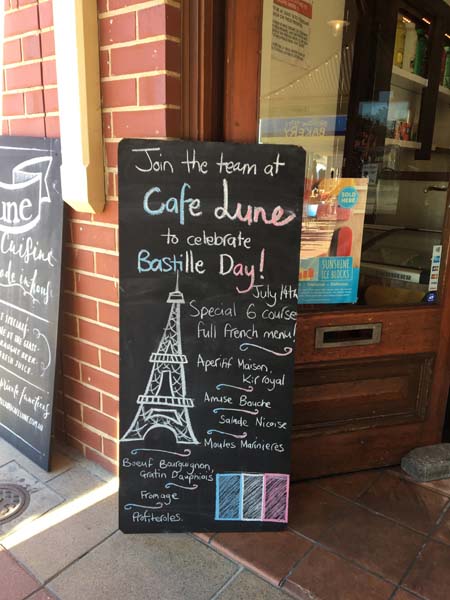 Join the team at
Cafe Lune
to celebrate
Bastille Day!
July 14th
Special 6 course
full French menu!
Aperitif Maison,
Kir royal
Amuse Bouche
Salade Nicoise
Moules Marinieres
Boeuf Bourguignon,
Gratin Dauphinois
Fromage
Profiteroles.
une
Cuisine
SOLD
HERE
SUNSHINE
ICE BLOCKS
BAKERY